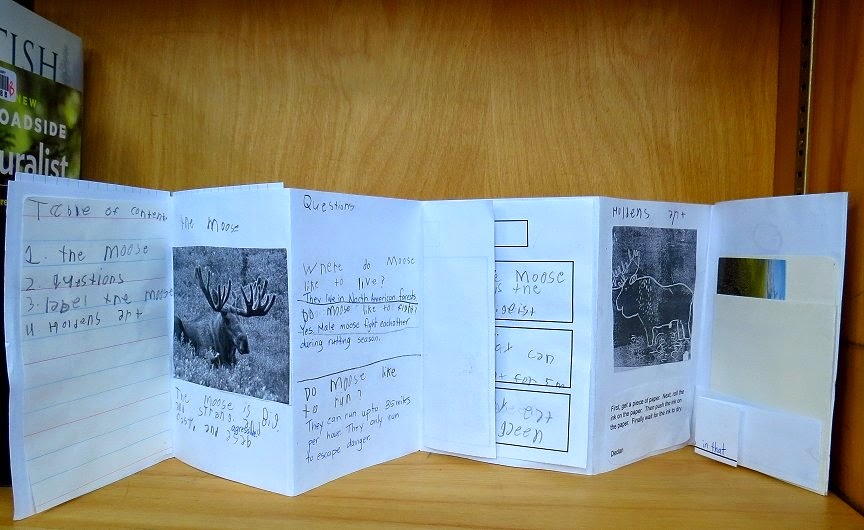 FISH
NEW
ROADSIDE
uralist
Table of content
1. the moose
2. questions
3. label the moose
4 Holdens art
the moose
The moose is Big
and strong.
aggressive
Questions
Where do Moose
like to live?
They live in North American forests.
Do moose like to fight?
Yes. Male moose fight each other
during rutting season.
Do moose like
to run?
They can run up to 35 miles
per hour. They only run
to escape danger.
Moose
is the
can
for 5m
Holdens art
First, get a piece of paper. Next, roll the
ink on the paper. Then push the ink on
the paper. Finally wait for the ink to dry.
Declan
in that